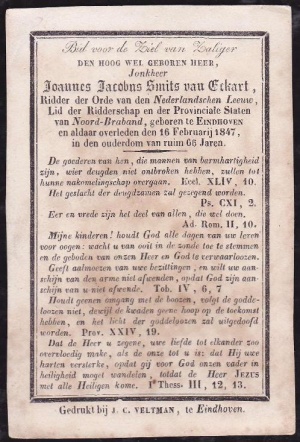 Bid voor de Ziel van Zaliger
DEN HOOG WEL GEBOREN HEER,
Jonkheer
Joannes Jacobus Smits van Eckart,
Ridder der Orde van den Nederlandschen Leeuw,
Lid der Ridderschap en der Provinciale Staten
van Noord-Braband, geboren te EINDHOVEN
en aldaar overleden den 16 Februarij 1847,
in den ouderdom van ruim 66 Jaren.
De goederen van hen, die mannen van barmhartigheid
zijn, wier deugden niet ontbroken hebben, zullen tot
hunne nakomelingschap overgaan. Eccl. XLIV, 10.
Het geslacht der deugdzamen zal gezegend worden.
Ps. CXI, 2.
Eer en vrede zijn het deel van allen, die wel doen.
Ad. Rom. II, 10.
Mijne kinderen! houdt God alle dagen van uw leven
voor oogen: wacht u van ooit in de zonde toe te stemmen
en de geboden van onzen Heer en God te verwaarloozen.
Geeft aalmoezen van uwe bezittingen, en wilt uw aan-
schijn van den arme niet afwenden, opdat God zijn aan-
schijn van u niet afwende. Tob. IV, 6, 7
Houdt geenen omgang met de boozen, volgt de godde-
loozen niet, dewijl de kwaden geene hoop op de toekomst
hebben, en het licht der goddeloozen zal uitgedoofd
worden. Prov. XXIV, 19.
Dat de Heer u zegene, uwe liefde tot elkander zoo
overvloedig make, als de onze tot u is: dat Hij uwe
harten versterke, opdat gij voor God onzen vader in
heiligheid moget wandelen, totdat de Heer JEZUS
met alle Heiligen kome. Iᵉ Thess. III, 12, 13.
Gedrukt bij J. C. VELTMAN, te Eindhoven.